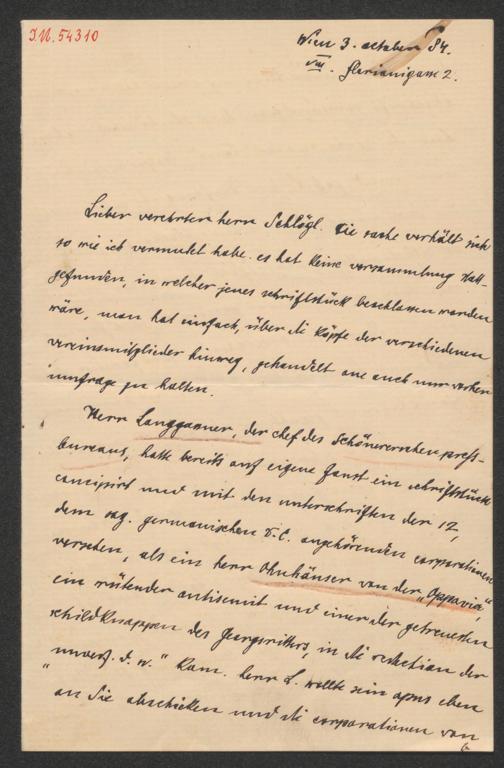 I.N. 54310
Wien 3. october 84.
VIII. florianigasse 2.
Lieber verehrter herr Schlögl. die sache verhält sich
so wie ich vermutet habe. es hat keine versammlung statt-
gefunden, in welcher jenes schriftstück beschlossen worden
wäre, man hat einfach, über die köpfe der verschiedenen
vereinsmitglieder hinweg, gehandelt one auch nur vorher
umfrage zu halten.
Herr Langganner, der chef des Schönererschen press-
bureaus, hatte bereits auf eigene faust ein schriftstück
concipirt und mit den unterschriften der 12,
dem sog. germanischen D.C. angehörenden corporationen
versehen, als ein herr Ohnhäuser von der „Oppavia",
ein wütender antisemit und einer der getreuesten
schildknappen des Georgsritters, in die redaction der
„unverf. d. w." kam. herr L. wollte sein opus eben
an Sie abschicken und die corporationen von